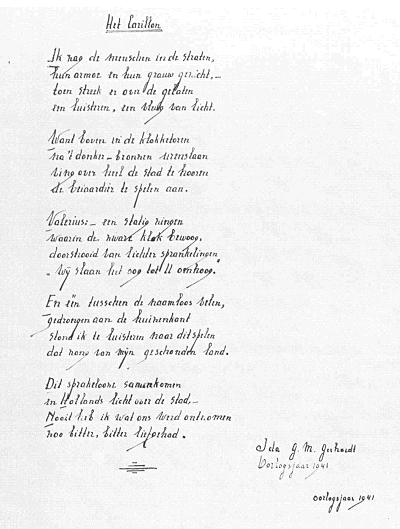 Het Carillon
Ik zag de menschen in de straten,
hun armoe en hun grauw gezicht,—
toen streek er over de gelaten
een luisteren, een vleug van licht.
Want boven in de klokketoren
na 't donker-bronzen urenslaan
ving over heel de stad te hooren
de beiaardier te spelen aan.
Valerius:— een statig zingen
waarin de zware klok bewoog,
doorstrooid van lichter sprankelingen
"Wij slaan het oog tot U omhoog."
En één tusschen de naamloos velen,
gedrongen aan de huizenkant
stond ik te luisteren naar dit spelen
dat zong van mijn geschonden land.
Dit sprakelooze samenkomen
en Hollands licht over de stad—
Nooit heb ik wat ons werd ontnomen
zoo bitter, bitter liefgehad.
Ida G. M. Gerhardt
Oorlogsjaar 1941
Oorlogsjaar 1941